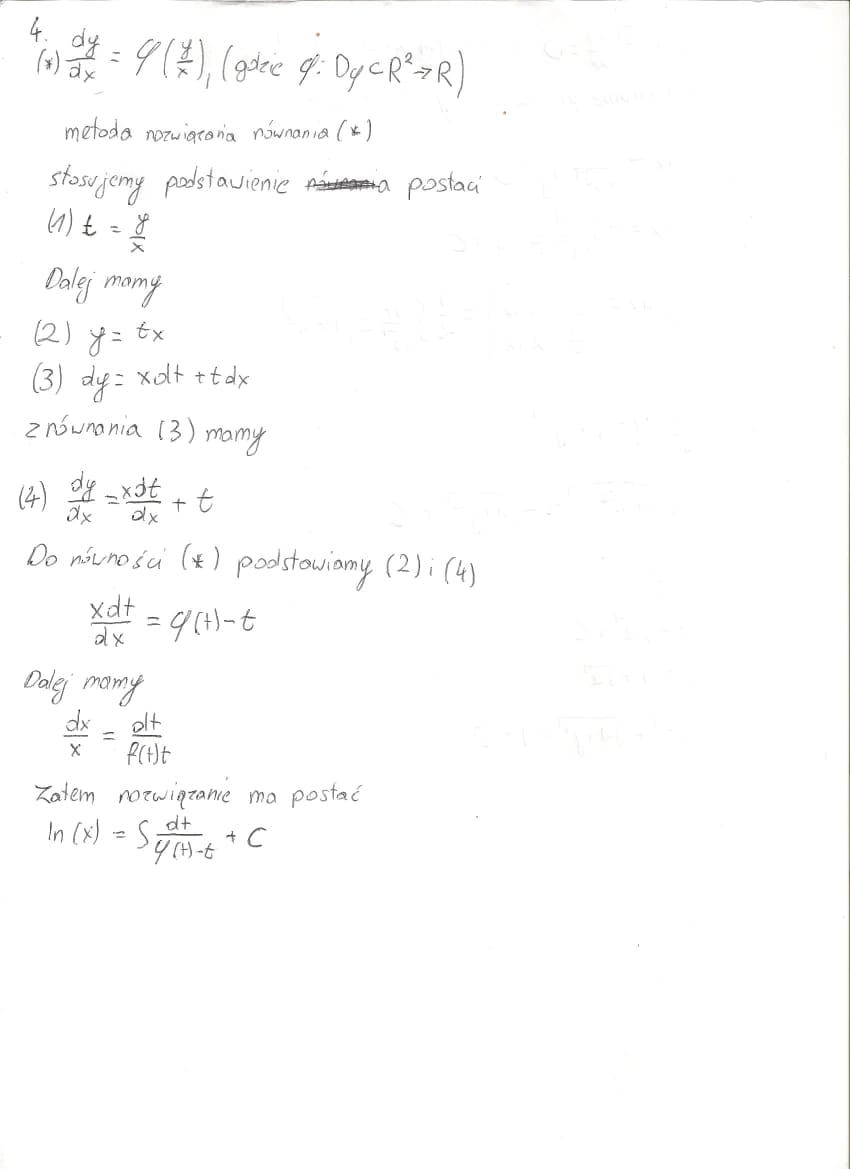 4.
(*) dy/dx = φ(y/x), (gdzie φ: Dφ⊂R²→R)
metoda rozwiązania równania (*)
stosujemy podstawienie postaci
(1) t = y/x
Dalej mamy
(2) y = tx
(3) dy = xdt + tdx
z równania (3) mamy
(4) dy/dx = xdt/dx + t
Do równości (*) podstawiamy (2) i (4)
xdt/dx = φ(t)-t
Dalej mamy
dx/x = dt/f(t)t
Zatem rozwiązanie ma postać
ln(x) = ∫ dt/φ(t)-t + C